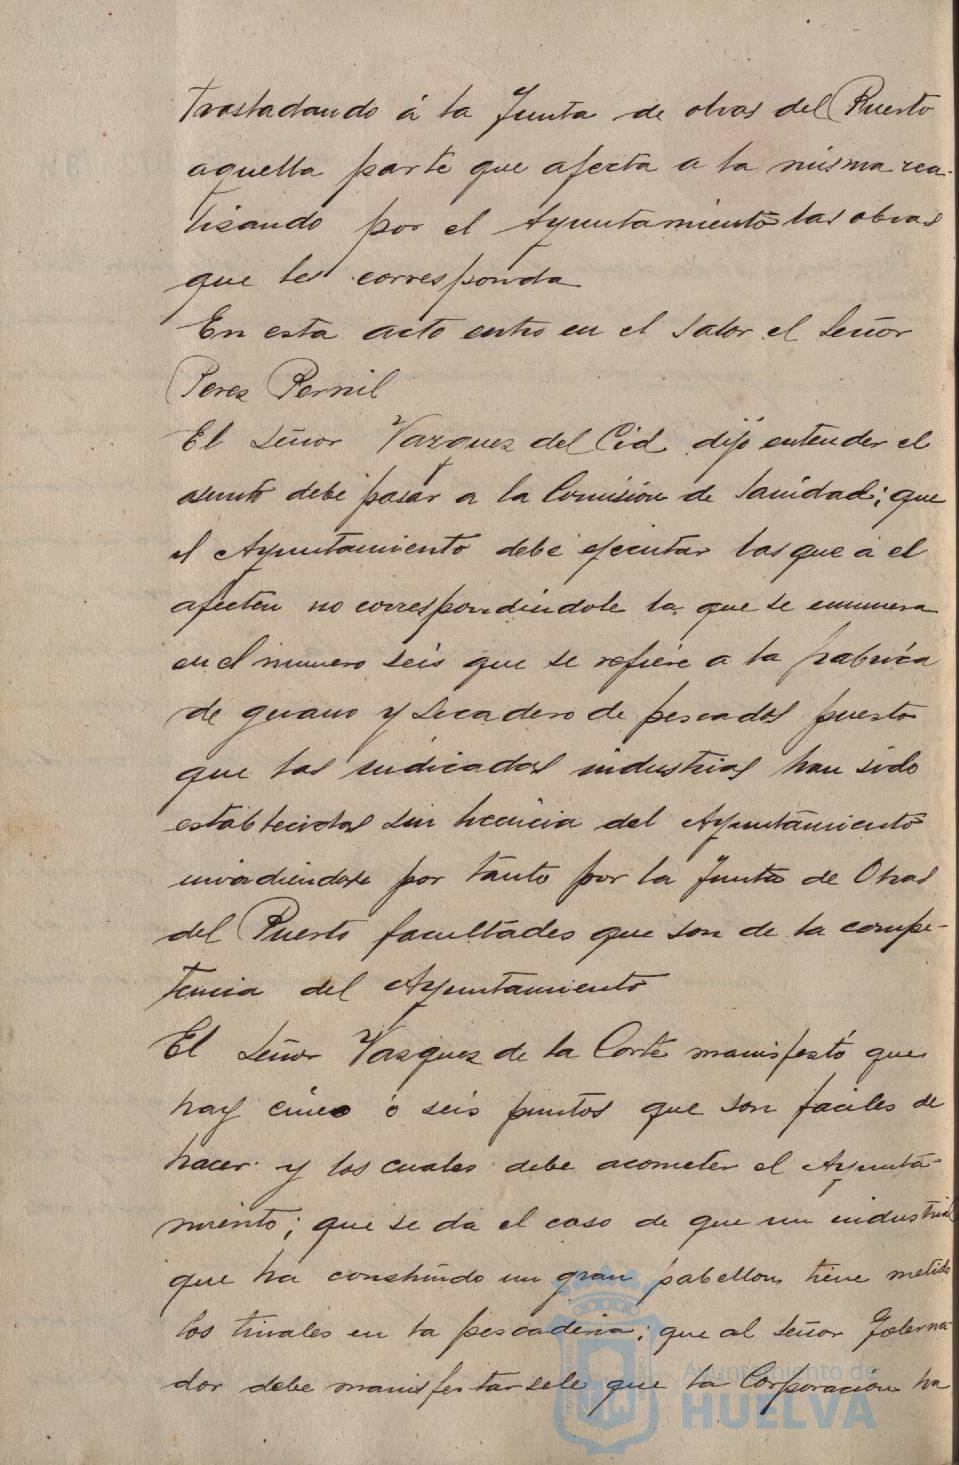 trasladando á la Junta de obras del Puerto
aquella parte que afecta a la misma rea-
lizando por el Ayuntamiento las obras
que les corresponda
En esta acto entro en el salor el señor
Perez Pernil
El señor Vazquez del Cid dijo entender el
asunto debe pasar a la Comisión de Sanidad; que
el Ayuntamiento debe ejecutar las que á el
afecten no correspondiendole la que se enumera
en el numero seis que se refiere a la fabrica
de guano y secadero de pescados puesto
que las indicadas industrias han sido
establecidas sin licencia del Ayuntamiento
invadiendose por tanto por la Junta de Obras
del Puerto facultades que son de la compe-
tencia del Ayuntamiento
El señor Vazquez de la Corte manifestó que
hay cinco ó seis puntos que son faciles de
hacer y los cuales debe acometer el Ayunta-
miento; que se da el caso de que un industrial
que ha construido un gran pabellon tiene metido
los tinales en la pescaderia; que al señor Goberna-
dor debe manifestarsele que la Corporacion ha
Ayuntamiento de
HUELVA